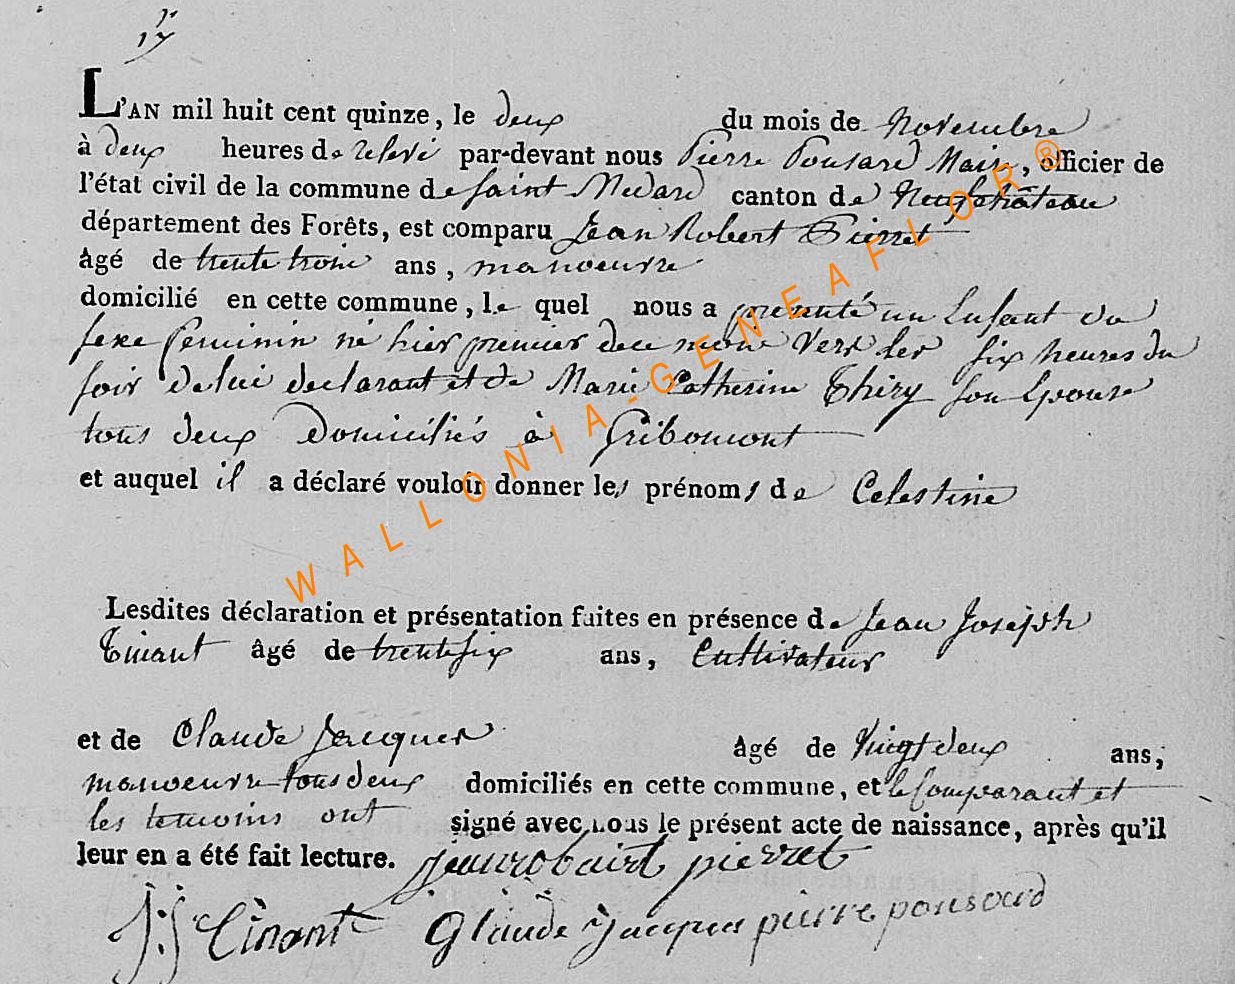 17
L'AN mil huit cent quinze, le deux du mois de Novembre
à deux heures de relevé par-devant nous Pierre Ponsard Maire, officier de
l'état civil de la commune de Saint Medard canton de Neufchâteau
département des Forêts, est comparu Jean Robert Pierret
âgé de trente trois ans, manoeuvre
domicilié en cette commune, le quel nous a presenté un Enfant du
sexe feminin né hier premier dece mois vers les six heures du
soir de lui declarant et de Marie Catherine Thiry son Epouse
tous deux Domiciliés à Gribomont
et auquel il a déclaré vouloir donner les prénoms de Celestine
Lesdites déclaration et présentation faites en présence de Jean Joseph
Tinant âgé de trentesix ans, Cultivateur
et de Claude Jacques âgé de Vingtdeux ans,
manoeuvre tousdeux domiciliés en cette commune, et le Comparant et
les temoins ont signé avec nous le présent acte de naissance, après qu'il
leur en a été fait lecture. jeanrobairt pierret
J:J Tinant Glaude Jacques pierre ponsard
WALLONIA-GENEAFLOR®